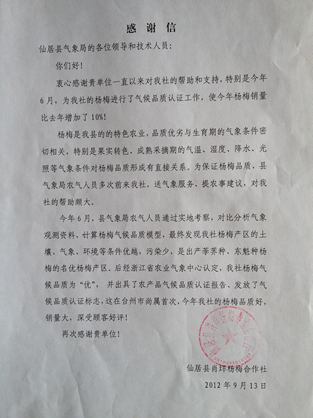 感谢信
仙居县气象局的各位领导和技术人员：
你们好！
衷心感谢贵单位一直以来对我社的帮助和支持，特别是今年
6月，为我社的杨梅进行了气候品质认证工作，使今年杨梅销量
比去年增加了10%！
杨梅是我县的的特色农业，品质优劣与生育期的气象条件密
切相关，特别是果实转色、成熟采摘期的气温、湿度、降水、光
照等气象条件对杨梅品质形成有直接关系。为保证杨梅品质，县
气象局农气人员多次前来我社，送气象服务、提农事建议，对我
社的帮助颇大。
今年6月，县气象局农气人员通过实地考察，对比分析气象
观测资料，计算杨梅气候品质模型，最终发现我社杨梅产区的土
壤、气象、环境等条件优越，污染少，是出产荸荠种、东魁种杨
梅的名优杨梅产区。后经浙江省农业气象中心认定，我社杨梅气
候品质为“优”，并出具了农产品气候品质认证报告、发放了气
候品质认证标志，这在台州市尚属首次，今年我社的杨梅品质好，
销量大，深受顾客好评！
再次感谢贵单位！
仙居县肖垟杨梅合作社
2012年9月13日